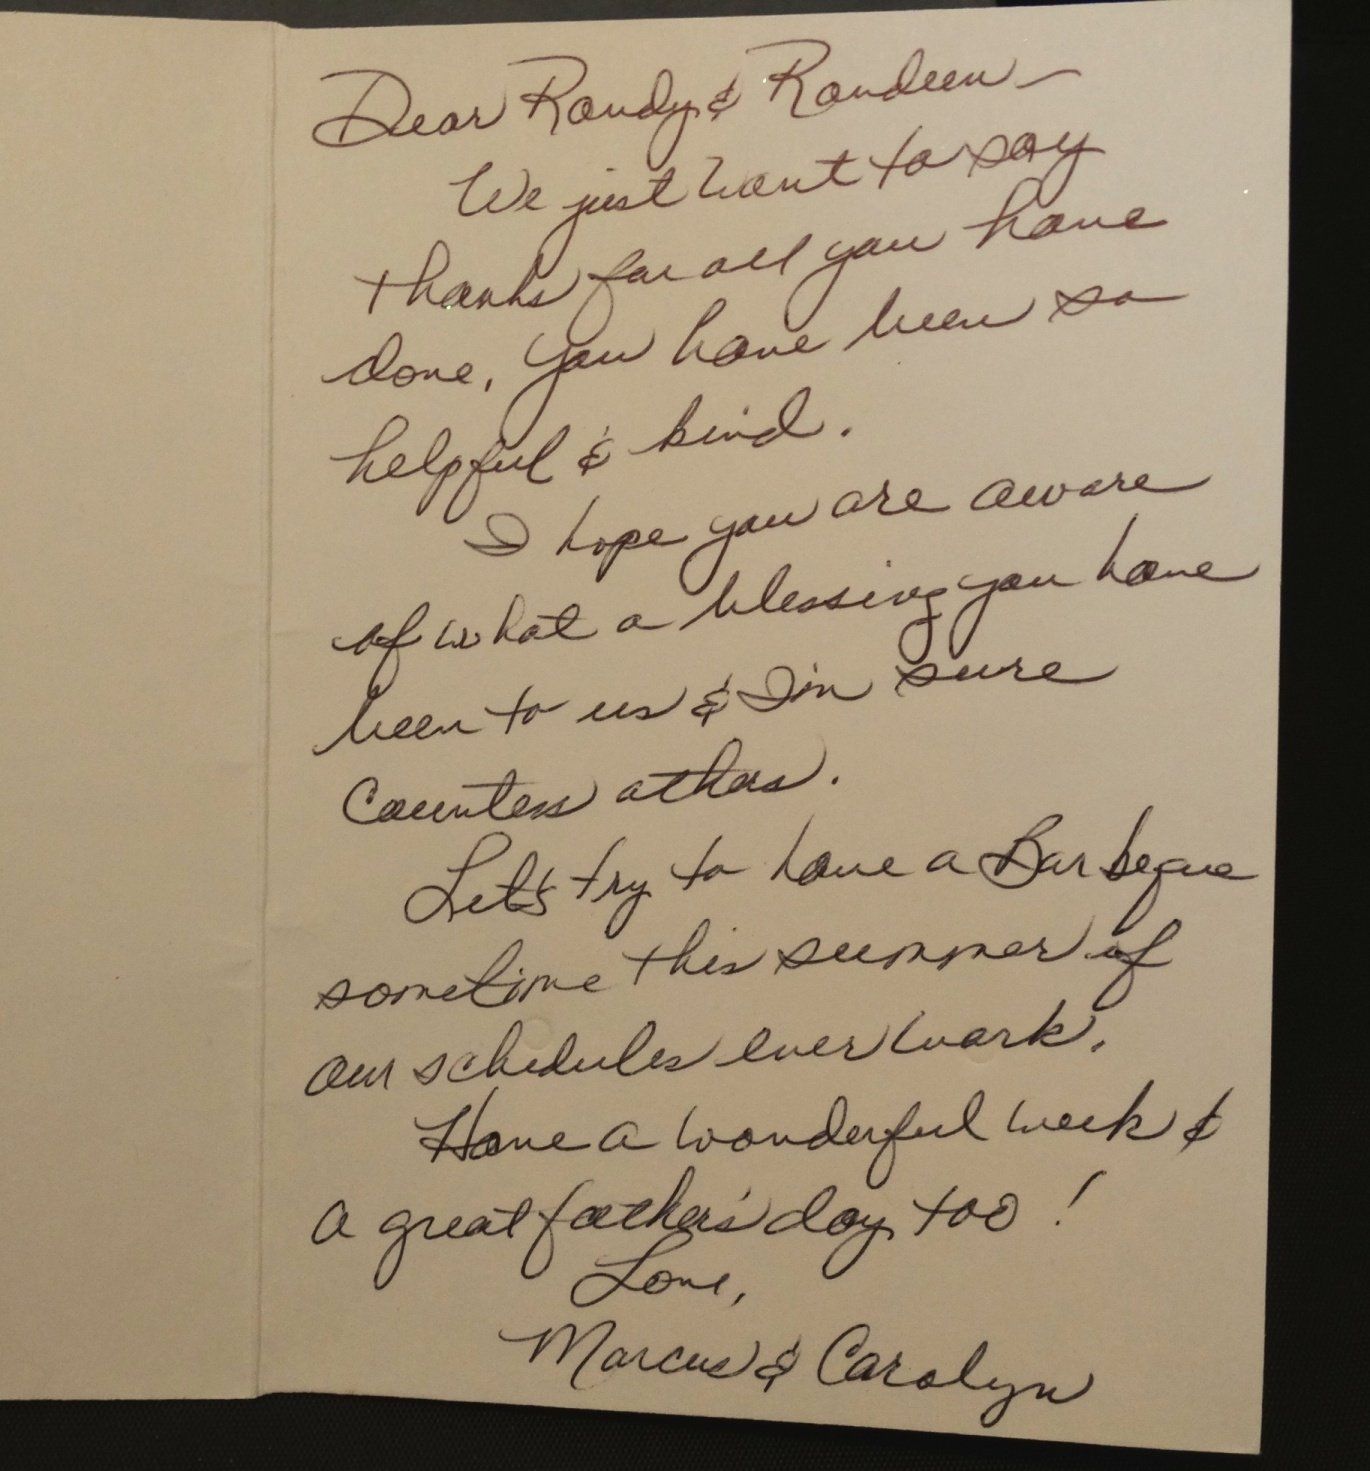 Dear Randy & Randeen –
We just want to say
thanks for all you have
done, you have been so
helpful & kind.
I hope you are aware
of what a blessing you have
been to us & I'm sure
countless others.
Let's try to have a Barbeque
sometime this summer if
our schedules ever work.
Have a wonderful week &
a great father's day too!
Love,
Marcus & Carolyn